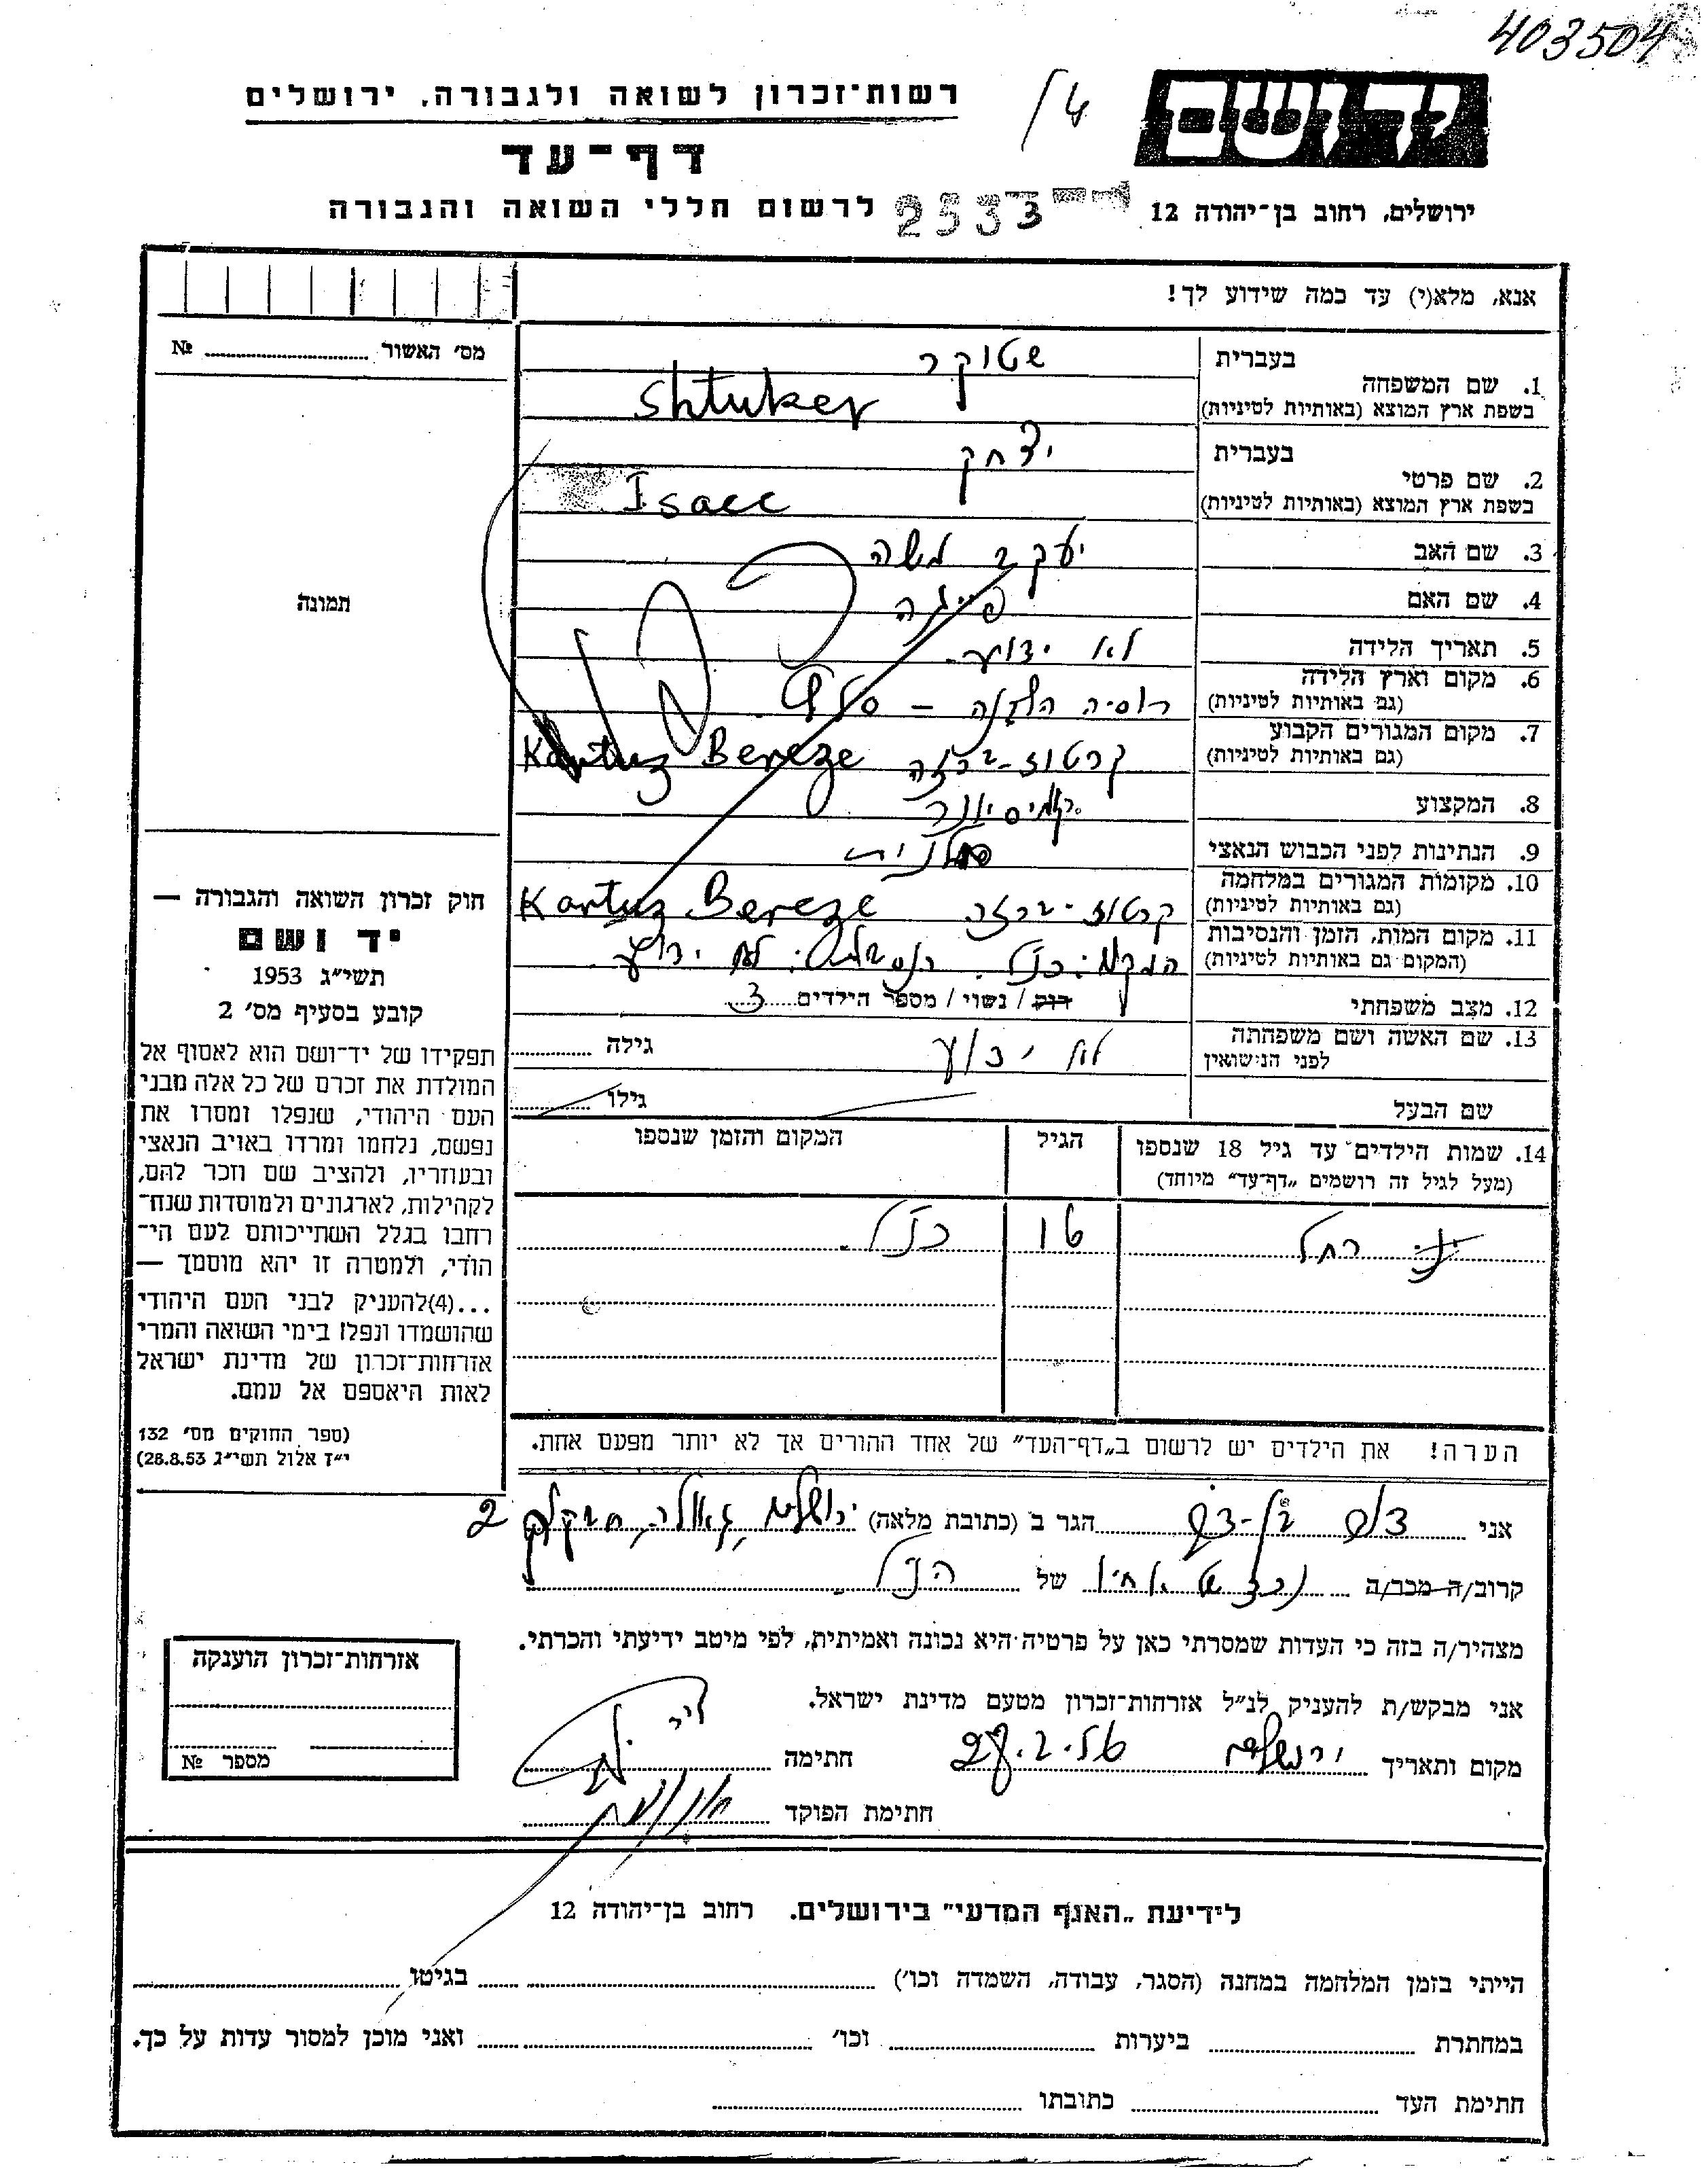 403504
ידושם
רשות־זכרון לשואה ולגבורה, ירושלים
דף־עד
ירושלים, רחוב בן־יהודה 12
2533
לרשום חללי השואה והגבורה
אנא, מלא(י) עד כמה שידוע לך!
מס׳ האשור № 
1. שם המשפחה
בעברית שטוקר
בשפת ארץ המוצא (באותיות לטיניות) Shtuker
2. שם פרטי
בעברית יצחק
בשפת ארץ המוצא (באותיות לטיניות) Isacc
3. שם האב יעקב משה
4. שם האם
5. תאריך הלידה לא ידוע
6. מקום וארץ הלידה רוסיה הלבנה –
(גם באותיות לטיניות)
7. מקום המגורים הקבוע קרטוז-ברזה Kartuz Bereze
(גם באותיות לטיניות)
8. המקצוע קומיסיונר
9. הנתינות לפני הכבוש הנאצי פולנית
10. מקומות המגורים במלחמה קרטוז-ברזה Kartuz Bereze
(גם באותיות לטיניות)
11. מקום המות, הזמן והנסיבות המקום: כנ״ל. לא ידוע
(המקום גם באותיות לטיניות)
12. מצב משפחתי רוק / נשוי / מספר הילדים 3
13. שם האשה ושם משפחתה לא ידוע גילה
לפני הנישואין
שם הבעל גילו
14. שמות הילדים עד גיל 18 שנספו הגיל המקום והזמן שנספו
(מעל לגיל זה רושמים „דף־עד״ מיוחד)
רחל 16 כנ״ל
הערה! את הילדים יש לרשום ב„דף־העד״ של אחד ההורים אך לא יותר מפעם אחת.
תמונה
חוק זכרון השואה והגבורה —
יד ושם
תשי״ג 1953
קובע בסעיף מס׳ 2
תפקידו של יד־ושם הוא לאסוף אל
המולדת את זכרם של כל אלה מבני
העם היהודי, שנפלו ומסרו את
נפשם, נלחמו ומרדו באויב הנאצי
ובעוזריו, ולהציב שם וזכר להם,
לקהילות, לארגונים ולמוסדות שנח־
רחבו בגלל השתייכותם לעם הי־
הודי, ולמטרה זו יהא מוסמך —
...(4)להעניק לבני העם היהודי
שהושמדו ונפלו בימי השואה והמרי
אזרחות־זכרון של מדינת ישראל
לאות היאספם אל עמם.
(ספר החוקים מס׳ 132
י״ז אלול תשי״ג 28.8.53)
אני בן-צבי הגר ב (כתובת מלאה) ירושלים, גאולה, 2
קרוב/ה מכר/ה נכד אחיו של הנ״ל
מצהיר/ה בזה כי העדות שמסרתי כאן על פרטיה היא נכונה ואמיתית, לפי מיטב ידיעתי והכרתי.
אני מבקש/ת להעניק לנ״ל אזרחות־זכרון מטעם מדינת ישראל.
מקום ותאריך ירושלים חתימה
חתימת הפוקד
אזרחות־זכרון הוענקה
מספר №
לידיעת „האגף המדעי״ בירושלים. רחוב בן־יהודה 12
הייתי בזמן המלחמה במחנה (הסגר, עבודה, השמדה וכו׳) בגיטו
במחתרת ביערות וכו׳ ואני מוכן למסור עדות על כך.
חתימת העד כתובתו